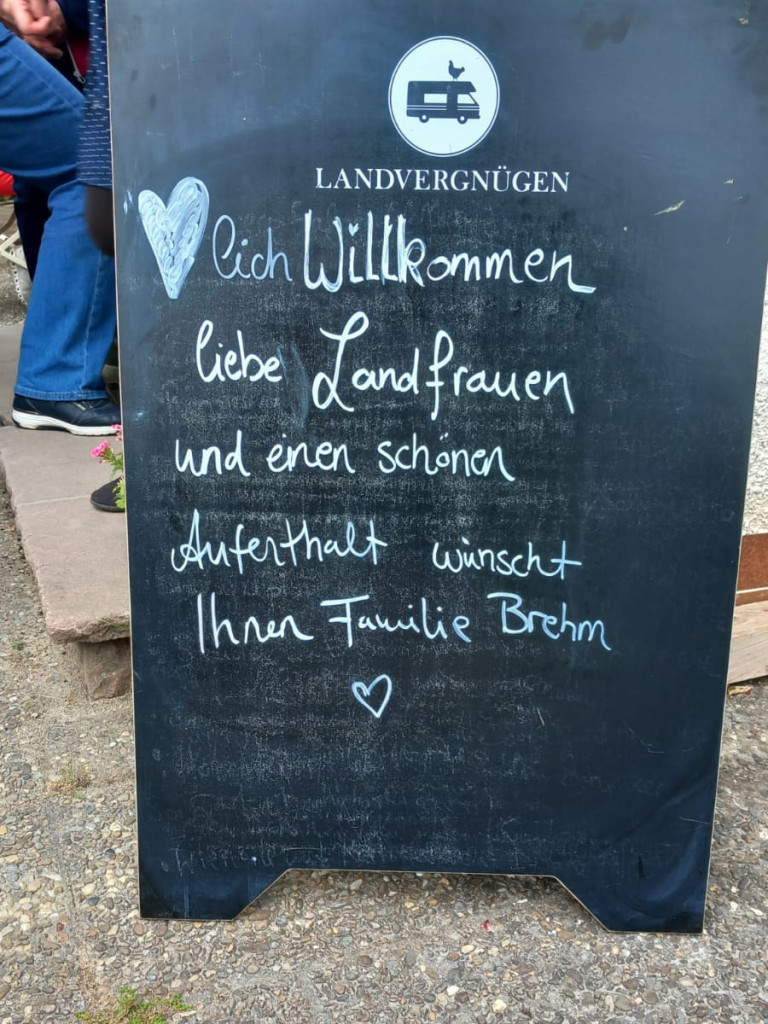 LANDVERGNÜGEN
lich Willkommen
liebe Landfrauen
und einen schönen
Auferthalt wünscht
Ihnen Familie Brehm